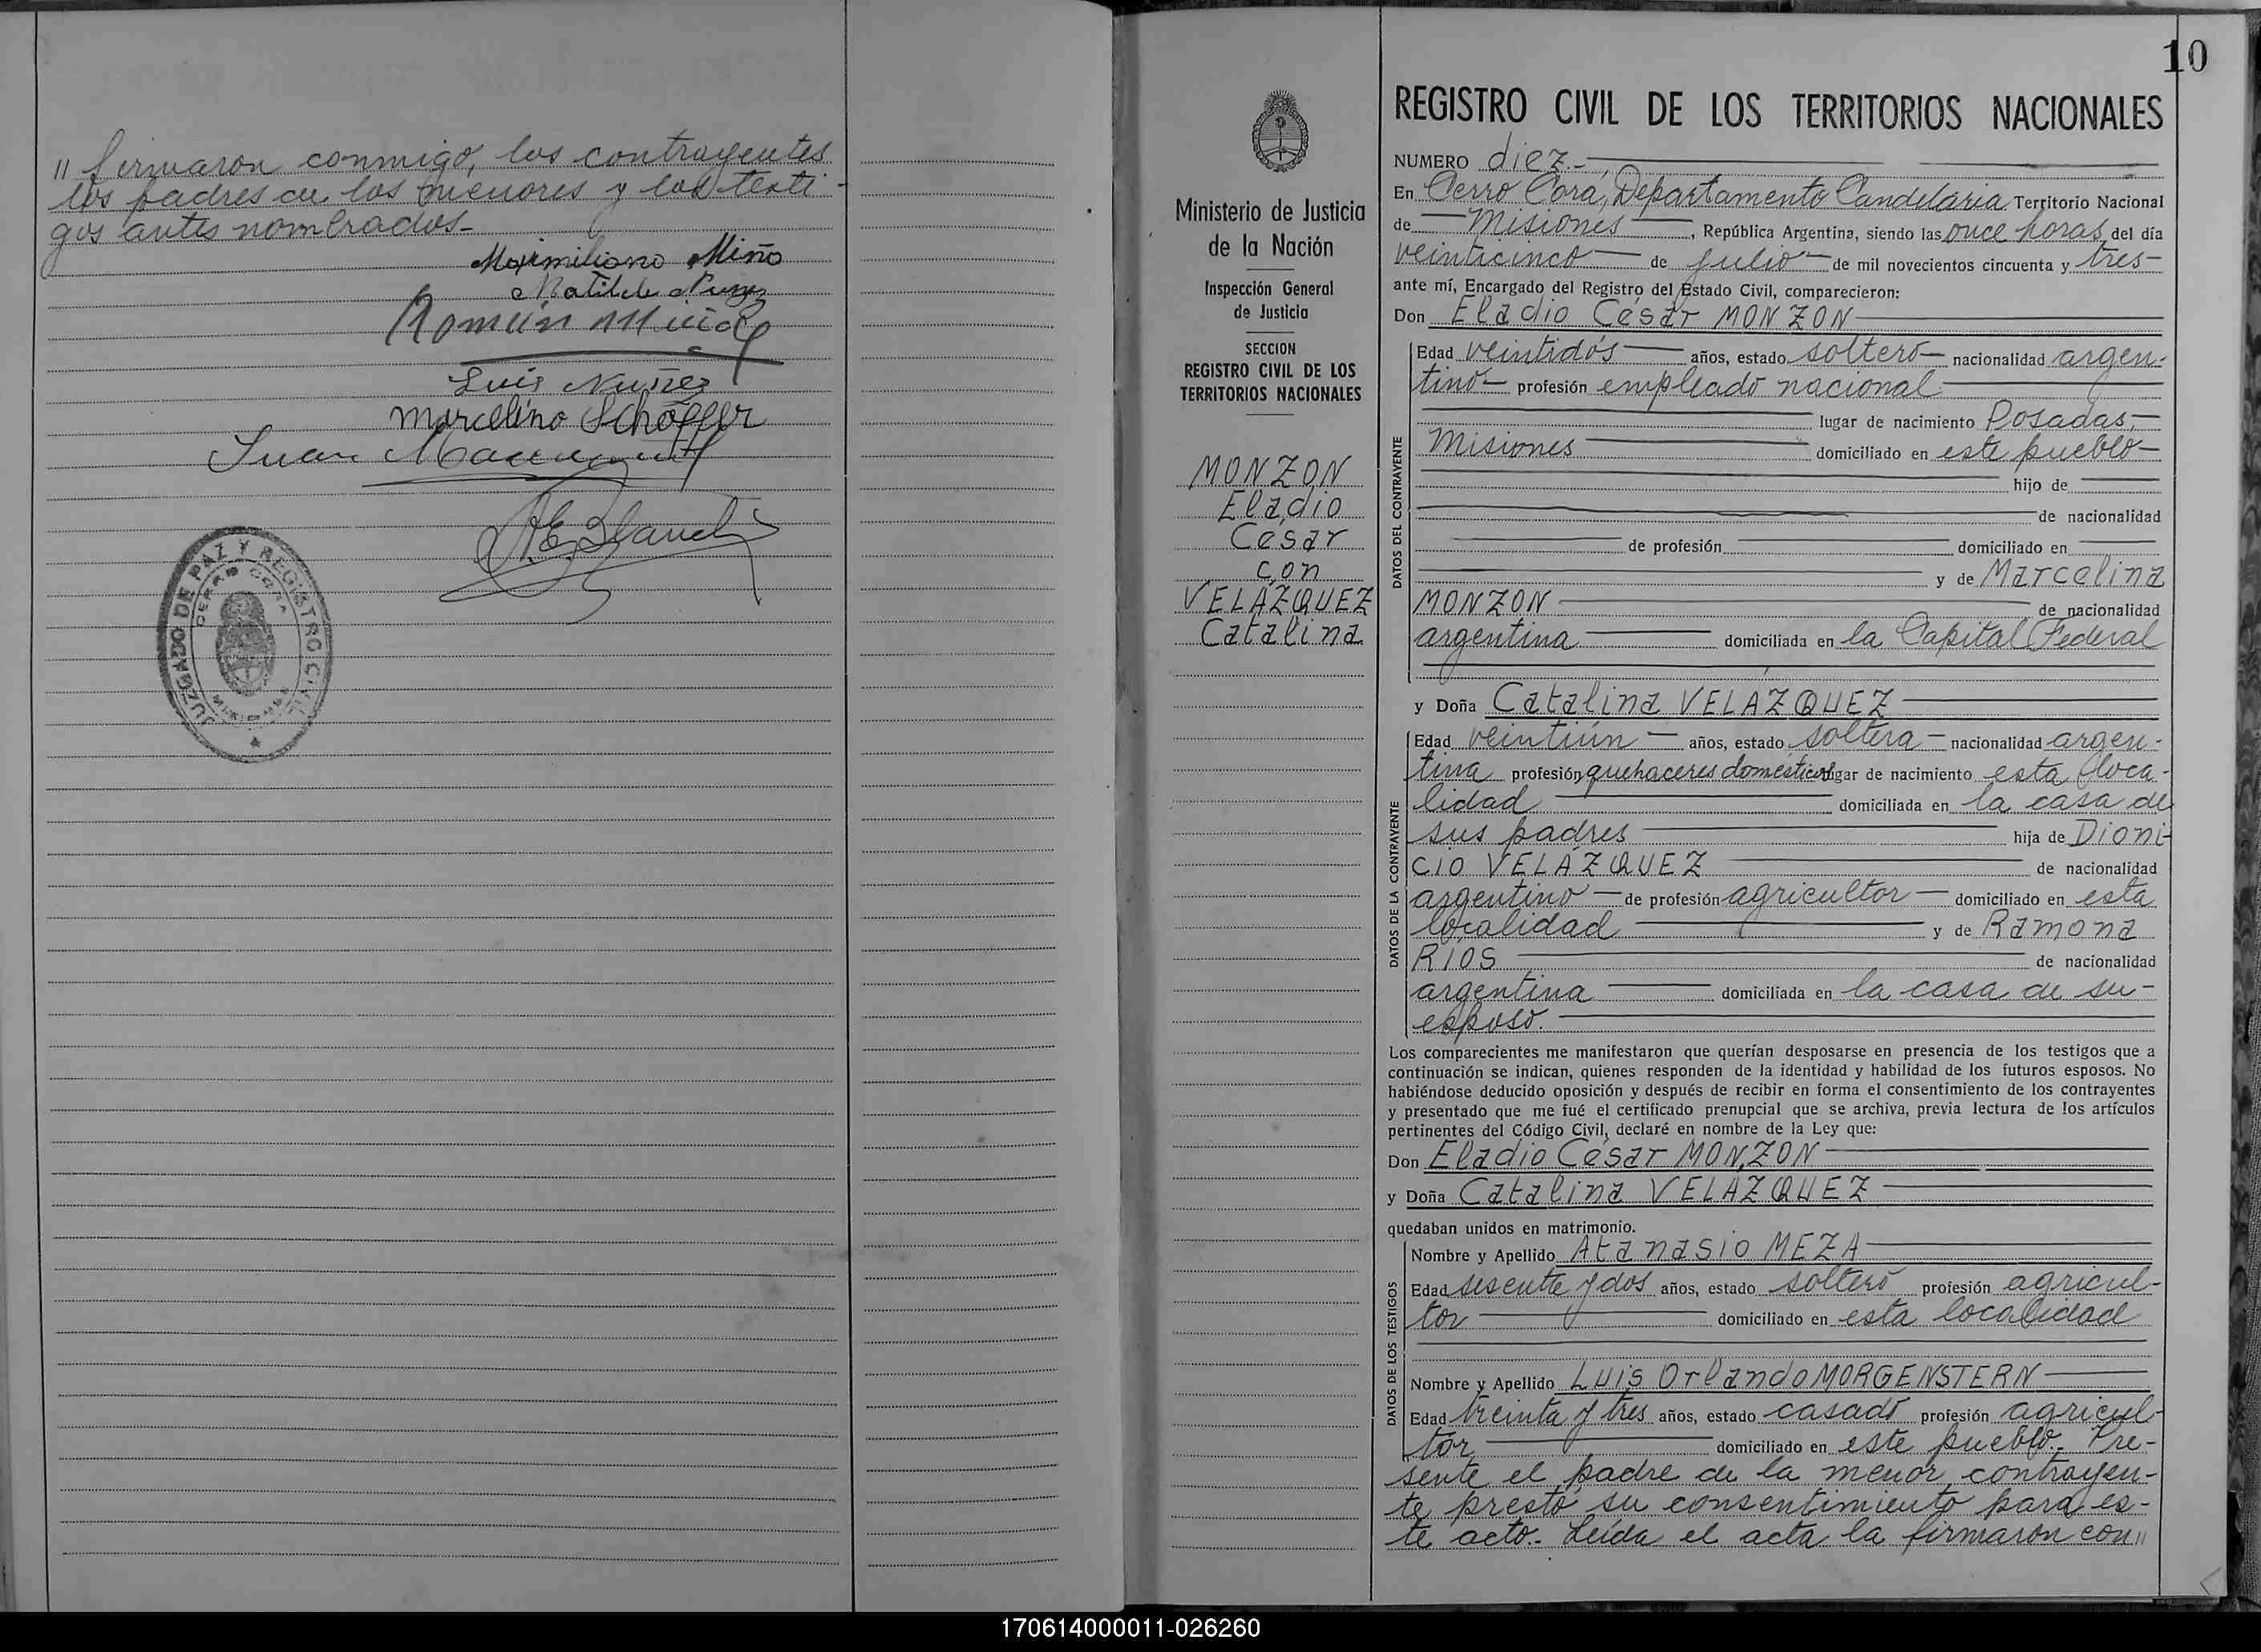 " firmaron conmigo, los contrayentes
los padres de los menores y los testi-
gos antes nombrados-
Maximiliano Miño
Matilde Nuñez
Román Miño
Luis Nuñez
Marcelino Schöffer
Juan
JUZGADO DE PAZ Y REGISTRO CIVIL
CERRO CORA
MISIONES
Ministerio de Justicia
de la Nación
Inspección General
de Justicia
SECCION
REGISTRO CIVIL DE LOS
TERRITORIOS NACIONALES
MONZON
Eladio
César
con
VELÁZQUEZ
Catalina
10
REGISTRO CIVIL DE LOS TERRITORIOS NACIONALES
NUMERO diez.-
En Cerro Corá, Departamento Candelaria Territorio Nacional
de Misiones, República Argentina, siendo las once horas del día
veinticinco de julio de mil novecientos cincuenta y tres-
ante mí, Encargado del Registro del Estado Civil, comparecieron:
Don Eladio César MONZON
DATOS DEL CONTRAYENTE
Edad veintidós años, estado soltero nacionalidad argen-
tino profesión empleado nacional
lugar de nacimiento Posadas,
Misiones domiciliado en este pueblo
hijo de
de nacionalidad
de profesión domiciliado en
y de Marcelina
MONZON de nacionalidad
argentina domiciliada en la Capital Federal
y Doña Catalina VELÁZQUEZ
DATOS DE LA CONTRAYENTE
Edad veintiún años, estado soltera nacionalidad argen-
tina profesión quehaceres domésticos lugar de nacimiento esta loca-
lidad domiciliada en la casa de
sus padres hija de Dioni-
cio VELÁZQUEZ de nacionalidad
argentino de profesión agricultor domiciliado en esta
localidad y de Ramona
RIOS de nacionalidad
argentina domiciliada en la casa de su-
esposo.
Los comparecientes me manifestaron que querían desposarse en presencia de los testigos que a
continuación se indican, quienes responden de la identidad y habilidad de los futuros esposos. No
habiéndose deducido oposición y después de recibir en forma el consentimiento de los contrayentes
y presentado que me fué el certificado prenupcial que se archiva, previa lectura de los artículos
pertinentes del Código Civil, declaré en nombre de la Ley que:
Don Eladio César MONZON
y Doña Catalina VELÁZQUEZ
quedaban unidos en matrimonio.
DATOS DE LOS TESTIGOS
Nombre y Apellido Atanasio MEZA
Edad sesenta y dos años, estado soltero profesión agricul-
tor domiciliado en esta localidad
Nombre y Apellido Luis Orlando MORGENSTERN
Edad treinta y tres años, estado casado profesión agricul-
tor domiciliado en este pueblo. Pre-
sente el padre de la menor contrayen-
te prestó su consentimiento para es-
te acto.- Leída el acta la firmaron con"
170614000011-026260